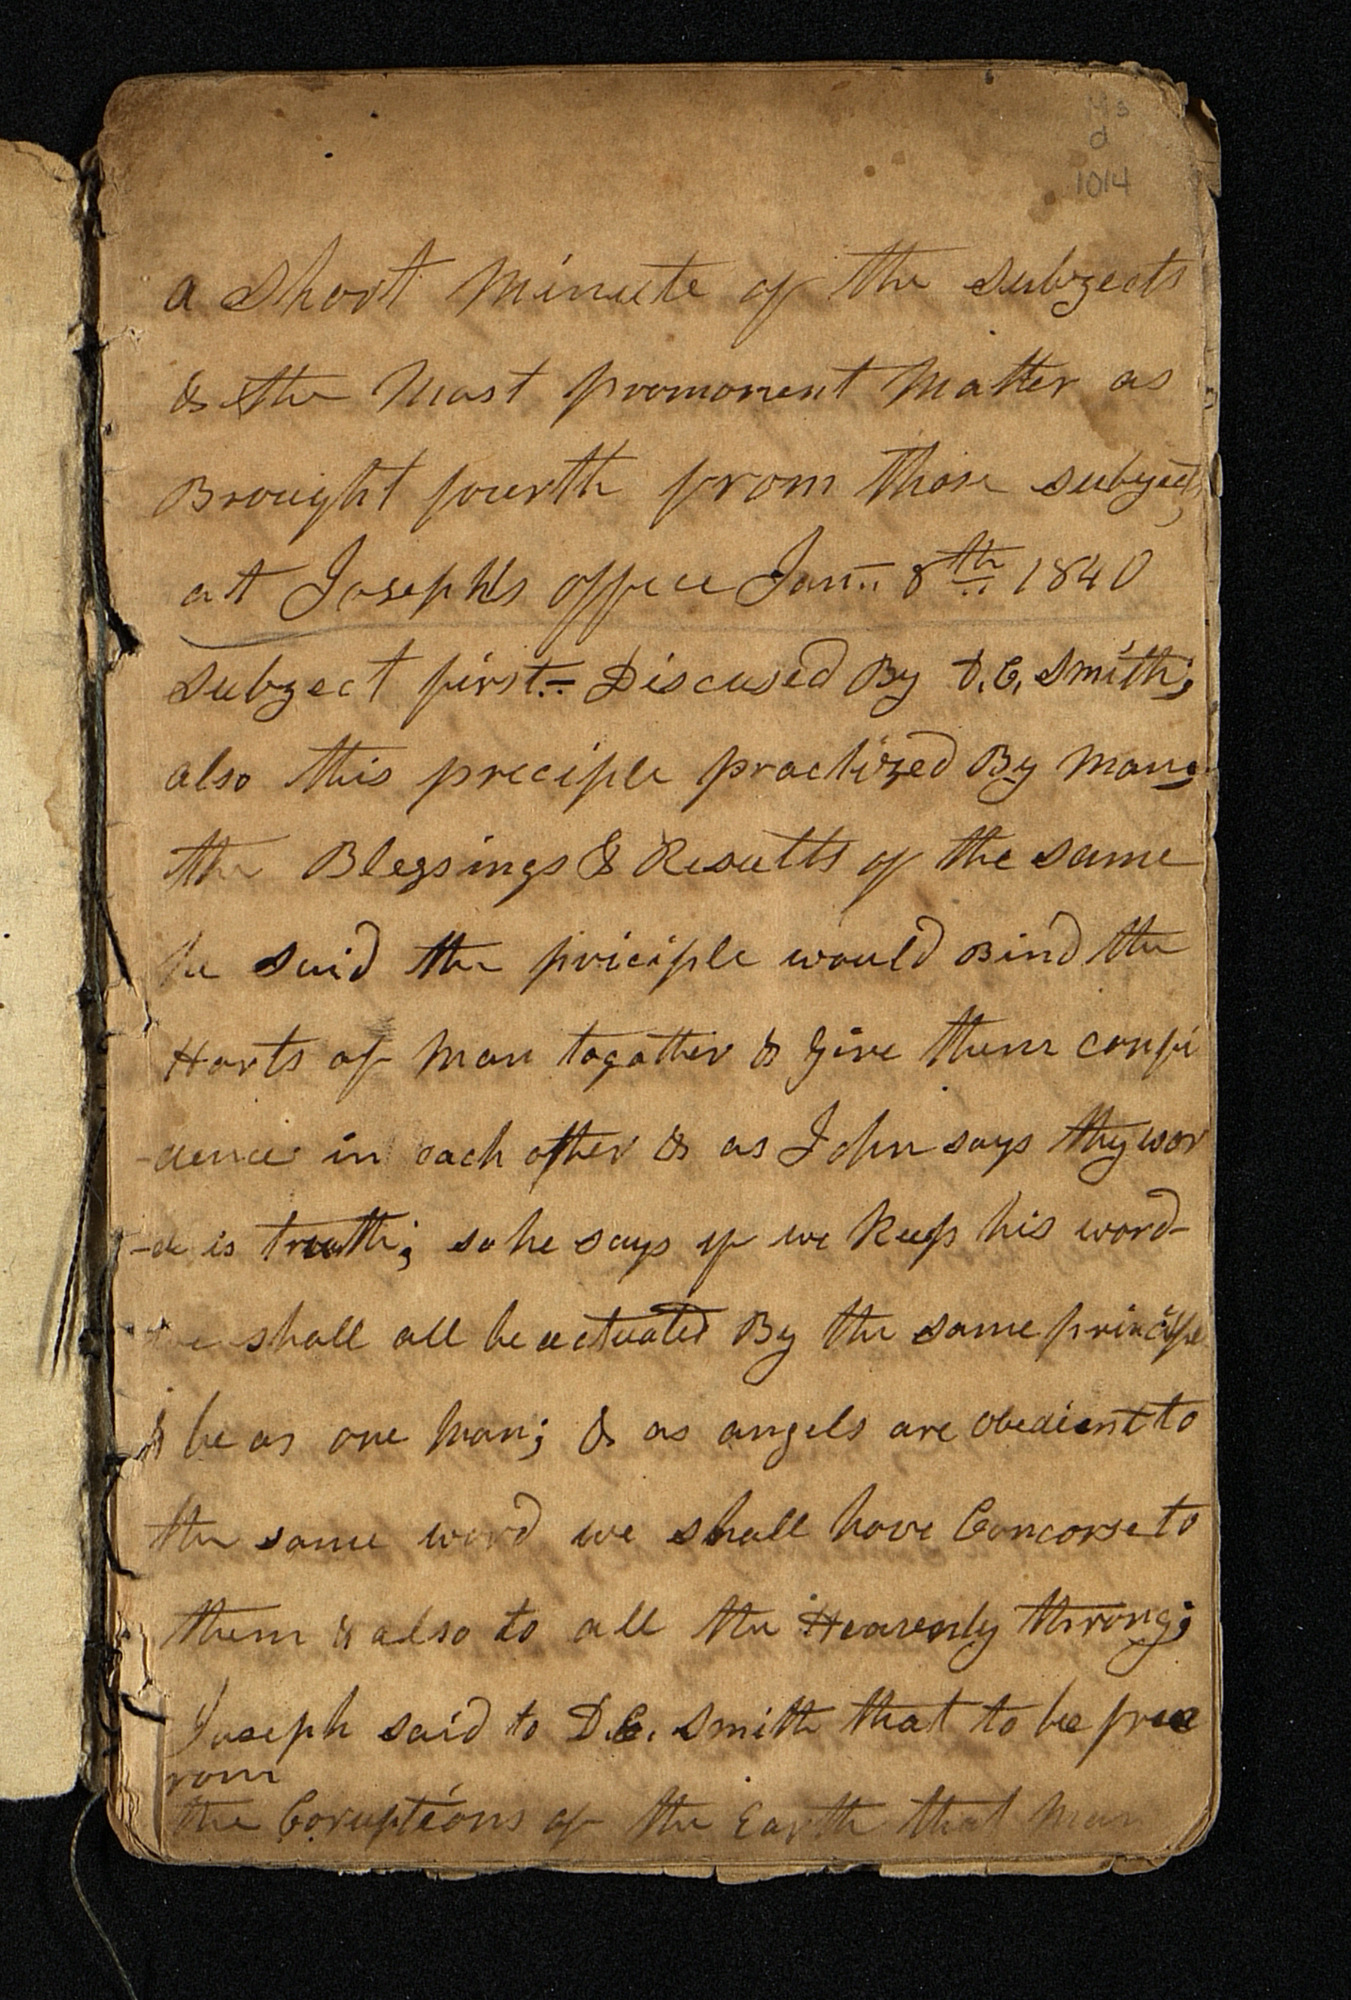 Ms
d
1014
a Short Minute of the subgects
& the Most promonent Matter as
Brought fourth from those subgects
at Joseph's office Jan.. 8th 1840
subgect first.= Discused By D.C. Smith;
also this preciple practized By man;
the Blegsings & Resultts of the same
he said the priciple would Bind the
Harts of Man togather & give them confi
-dence in each other & as John says thy wor
-d is truth; so he says if we keep his word-
we shall all be actuated By the same principle
& be as one Man; & as angels are obedient to
the same word we shall have Concorse to
them & also to all the Heavenly throng;
Joseph said to D.C. Smith that to be free
rom
the Coruptions of the Earth that Man